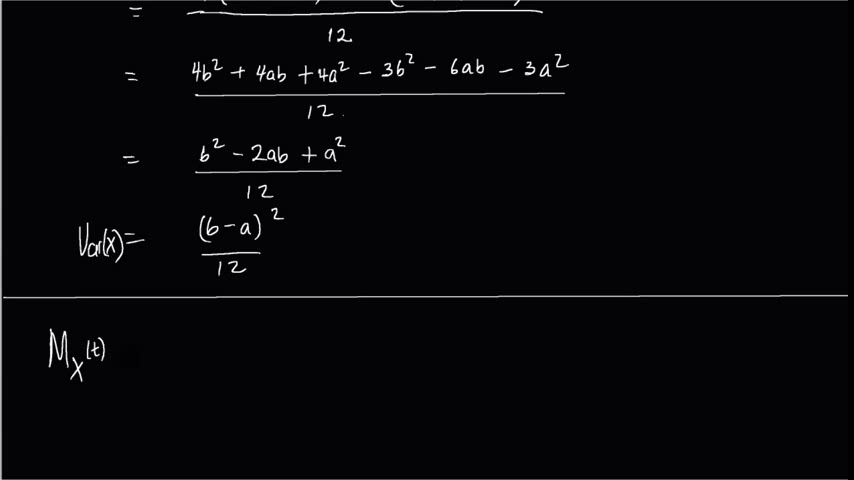 = 12
= 4b² + 4ab + 4a² - 3b² - 6ab - 3a² / 12
= b² - 2ab + a² / 12
Var(X) = (b-a)² / 12
M_X(t)